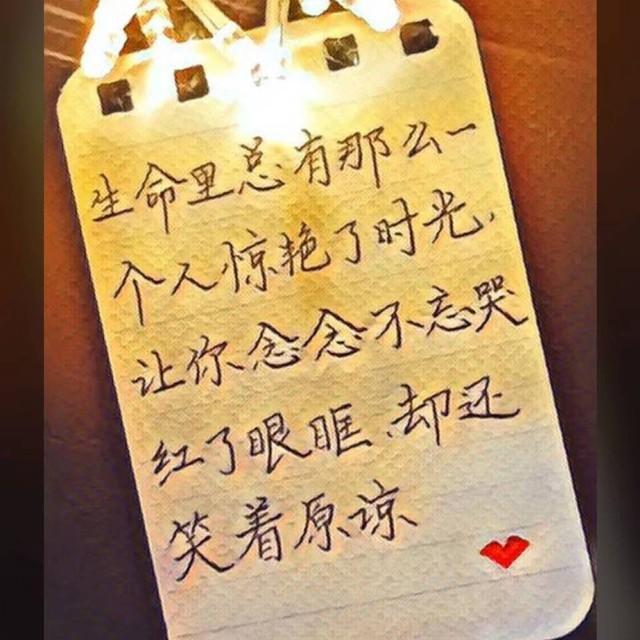 生命里总有那么一
个人惊艳了时光,
让你念念不忘哭
红了眼眶、却还
笑着原谅